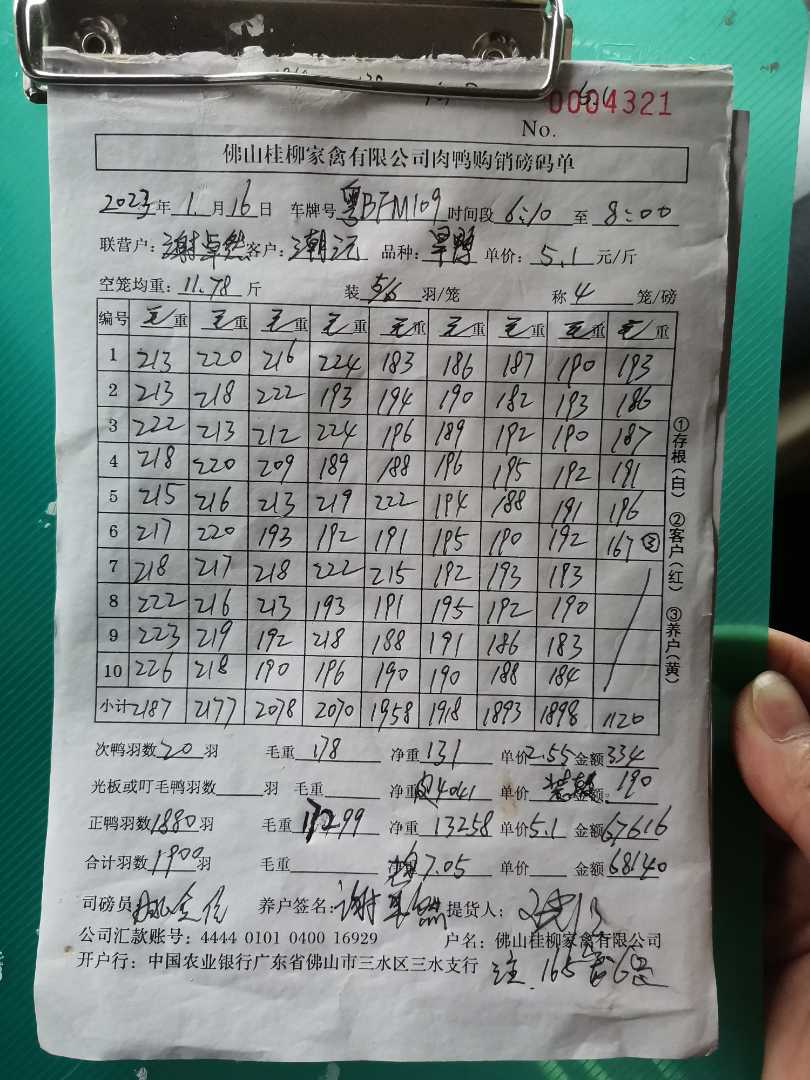 0004321
No.
佛山桂柳家禽有限公司肉鸭购销磅码单
2023年 1.月16日 车牌号 粤BFM109 时间段 6:10 至 8:00
联营户: 谢卓然 客户: 潮记 品种: 旱鸭 单价: 5.1 元/斤
空笼均重: 11.78 斤 装 5/6 羽/笼 称 4 笼/磅
编号 毛重 毛重 毛重 毛重 毛重 毛重 毛重 毛重 毛重
1 213 220 216 224 183 186 187 190 193
2 213 218 222 193 194 190 182 193 186
3 222 213 212 224 196 189 192 190 187
4 218 220 209 189 188 196 195 192 191
5 215 216 213 219 222 194 188 191 196
6 217 220 193 192 191 195 190 192 167 ③
7 218 217 218 222 215 192 193 193
8 222 216 213 193 191 195 192 190
9 223 219 192 218 188 191 186 183
10 226 218 190 196 190 190 188 184
小计 2187 2177 2078 2070 1958 1918 1893 1898 1120
①存根(白) ②客户(红) ③养户(黄)
次鸭羽数 20 羽 毛重 178 净重 131 单价 2.55 金额 334
光板或叮毛鸭羽数 羽 毛重 净重 4041 单价 金额 190
正鸭羽数 1880 羽 毛重 17299 净重 13258 单价 5.1 金额 67616
合计羽数 1900 羽 毛重 均7.05 单价 金额 68140
司磅员 养户签名: 谢卓然 提货人:
公司汇款账号: 4444 0101 0400 16929 户名: 佛山桂柳家禽有限公司
开户行: 中国农业银行广东省佛山市三水区三水支行 注.165